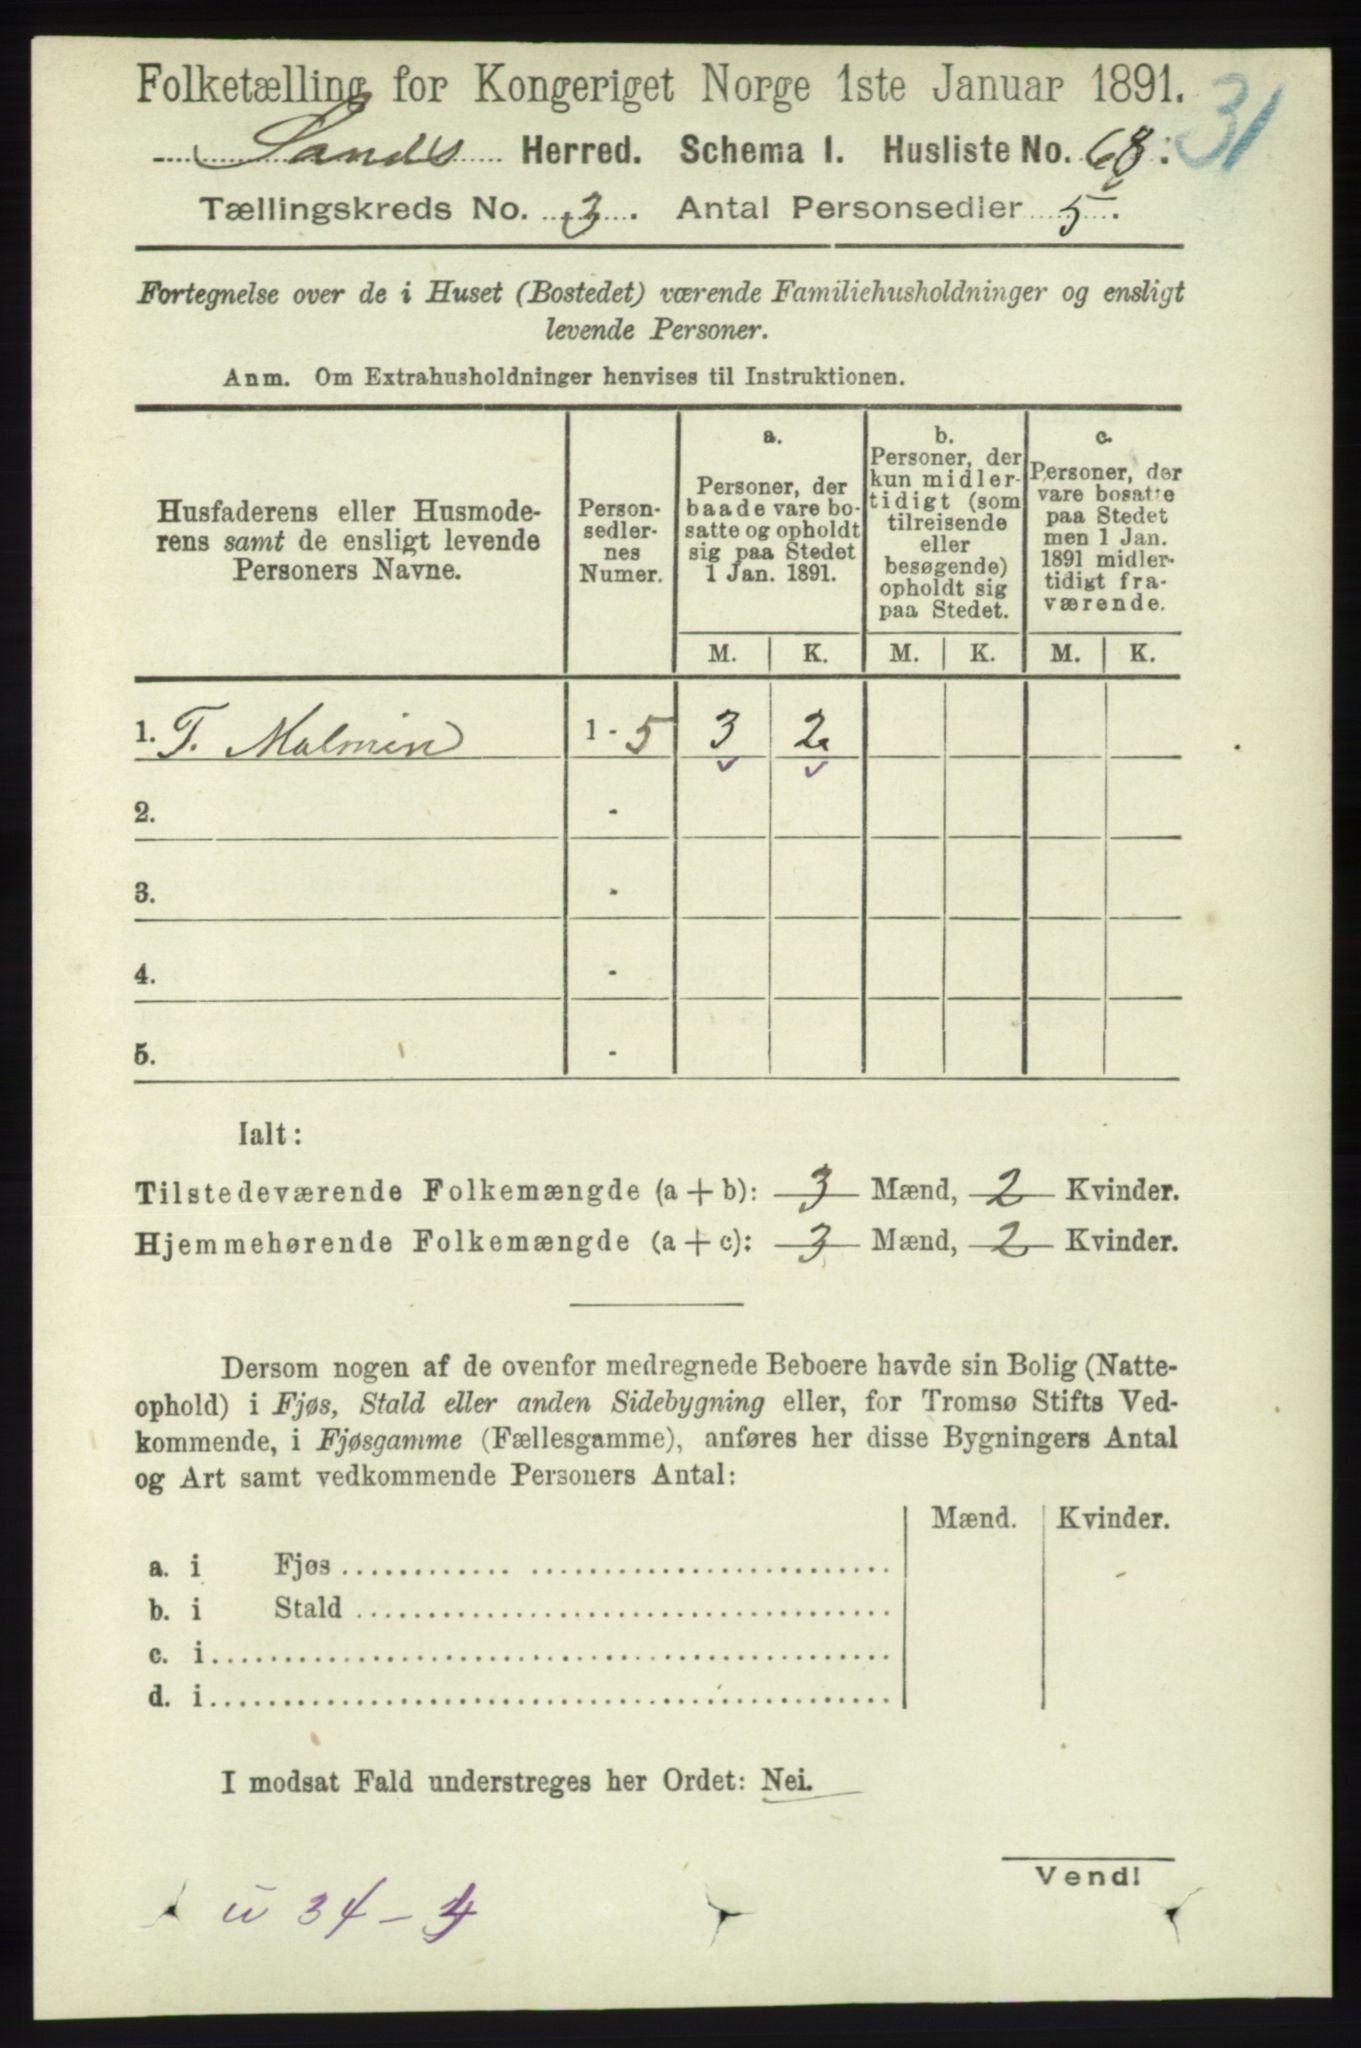 Folketælling for Kongeriget Norge 1ste Januar 1891.
31
Sands Herred. Schema I. Husliste No. 68.
Tællingskreds No. 3. Antal Personsedler 5.
Fortegnelse over de i Huset (Bostedet) værende Familiehusholdninger og ensligt
levende Personer.
Anm. Om Extrahusholdninger henvises til Instruktionen.
Husfaderens eller Husmode-
rens samt de ensligt levende
Personers Navne.
Person-
sedler-
nes
Numer.
a.
Personer, der
baade vare bo-
satte og opholdt
sig paa Stedet
1 Jan. 1891.
b.
Personer, der
kun midler-
tidigt (som
tilreisende
eller
besøgende)
opholdt sig
paa Stedet.
c.
Personer, der
vare bosatte
paa Stedet
men 1 Jan.
1891 midler-
tidigt fra-
værende.
M. K. M. K. M. K.
1. T. Malmin 1 - 5 3 2
2. -
3. -
4. -
5. -
Ialt:
Tilstedeværende Folkemængde (a + b): 3 Mænd, 2 Kvinder.
Hjemmehørende Folkemængde (a + c): 3 Mænd, 2 Kvinder.
Dersom nogen af de ovenfor medregnede Beboere havde sin Bolig (Natte-
ophold) i Fjøs, Stald eller anden Sidebygning eller, for Tromsø Stifts Ved-
kommende, i Fjøsgamme (Fællesgamme), anføres her disse Bygningers Antal
og Art samt vedkommende Personers Antal:
Mænd. Kvinder.
a. i Fjøs
b. i Stald
c. i
d. i
I modsat Fald understreges her Ordet: Nei.
Vend!
u 34 -